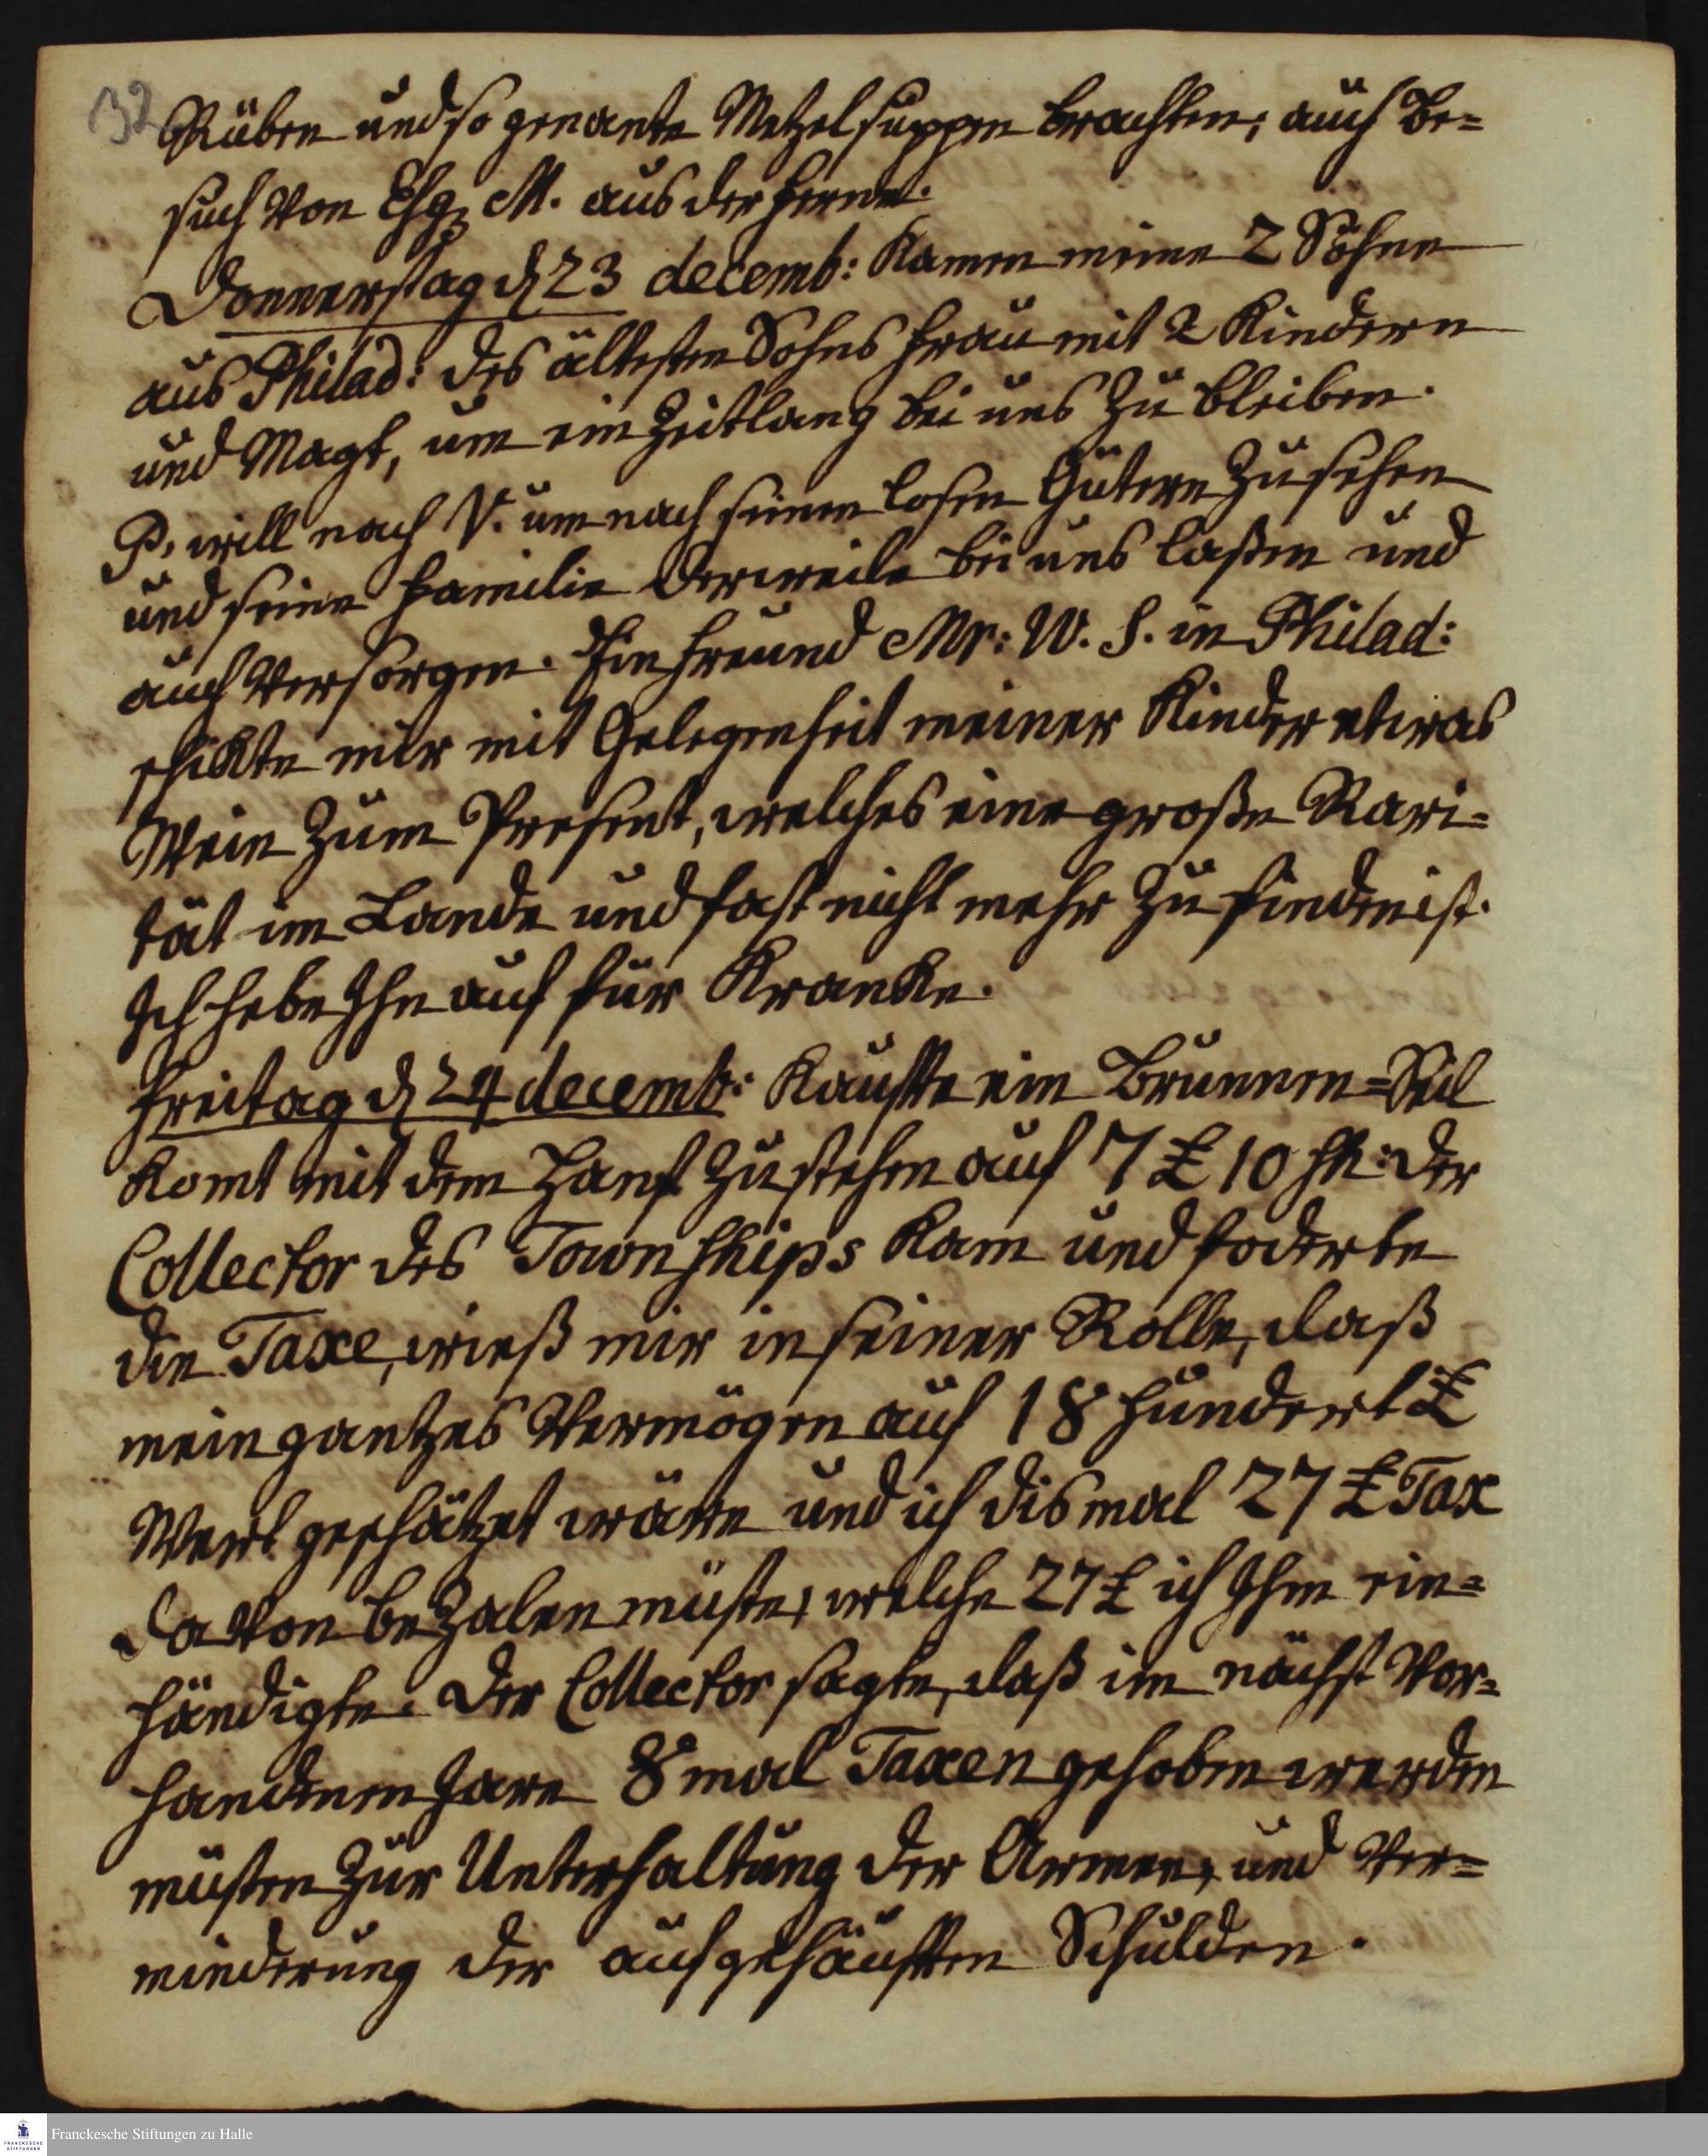 32
Rüben und so genante Metzelsuppen brachten; auch Be=
such von Esq; M. aus der ferne.
Donnerstag d 23 decemb: Kamen meine 2 Söhne
aus Philad: des ältesten Sohns frau mit 2 Kindern
und Magt, um ein Zeitlang bei uns zu bleiben.
P. will nach V. um nach seinen losen Gütern zu sehen
und seine familie derweile bei uns laßen und
auch versorgen. Ein freund Mr: W. S. in Philad:
schikte mir mit Gelegenheit meiner Kinder etwas
Wein zum Present, welches eine große Rari=
tät im Lande und fast nicht mehr zu finden ist.
Ich hebe Ihn auf für Kranke.
freitag d 24 decemb: Kaufte ein Brunnen=Seil
komt mit dem Hanf zu stehen auf 7 £ 10 sh: der
Collector des Townships kam und foderte
die Taxe, wieß mir in seiner Rolle, daß
mein gantzes Vermögen auf 18 hundert £
Wert geschätzet wäre und ich dismal 27 £ Tax
davon bezalen müste, welche 27 £ ich Ihm ein=
händigte. Der Collector sagte, daß im nächst vor=
handenen Jare 8 mal Taxen gehoben werden
müsten zur Unterhaltung der Armee, und Ver=
minderung der aufgehäuften Schulden.
Franckesche Stiftungen zu Halle
FRANCKESCHE
STIFTUNGEN